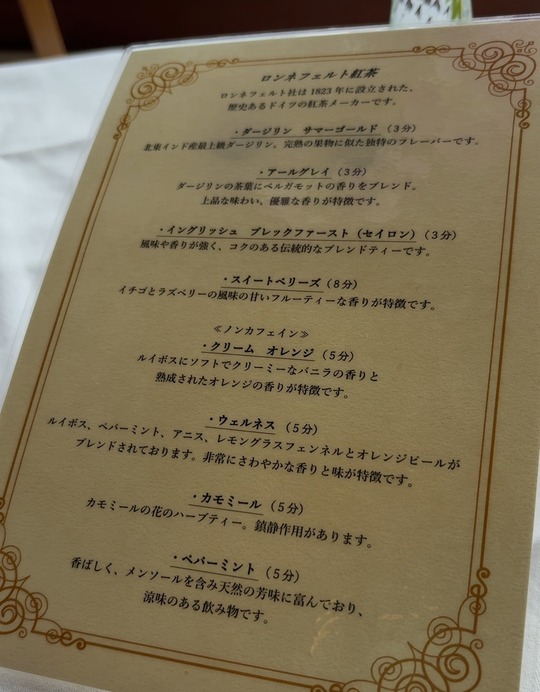 ロンネフェルト紅茶
ロンネフェルト社は1823年に設立された、
歴史あるドイツの紅茶メーカーです。
・ダージリン サマーゴールド（3分）
北東インド産最上級ダージリン。完熟の果物に似た独特のフレーバーです。
・アールグレイ（3分）
ダージリンの茶葉にベルガモットの香りをブレンド。
上品な味わい、優雅な香りが特徴です。
・イングリッシュ ブレックファースト（セイロン）（3分）
風味や香りが強く、コクのある伝統的なブレンドティーです。
・スイートベリーズ（8分）
イチゴとラズベリーの風味の甘いフルーティーな香りが特徴です。
≪ノンカフェイン≫
・クリーム オレンジ（5分）
ルイボスにソフトでクリーミーなバニラの香りと
熟成されたオレンジの香りが特徴です。
・ウェルネス（5分）
ルイボス、ペパーミント、アニス、レモングラスフェンネルとオレンジピールが
ブレンドされております。非常にさわやかな香りと味が特徴です。
・カモミール（5分）
カモミールの花のハーブティー。鎮静作用があります。
・ペパーミント（5分）
香ばしく、メンソールを含み天然の芳味に富んでおり、
涼味のある飲み物です。